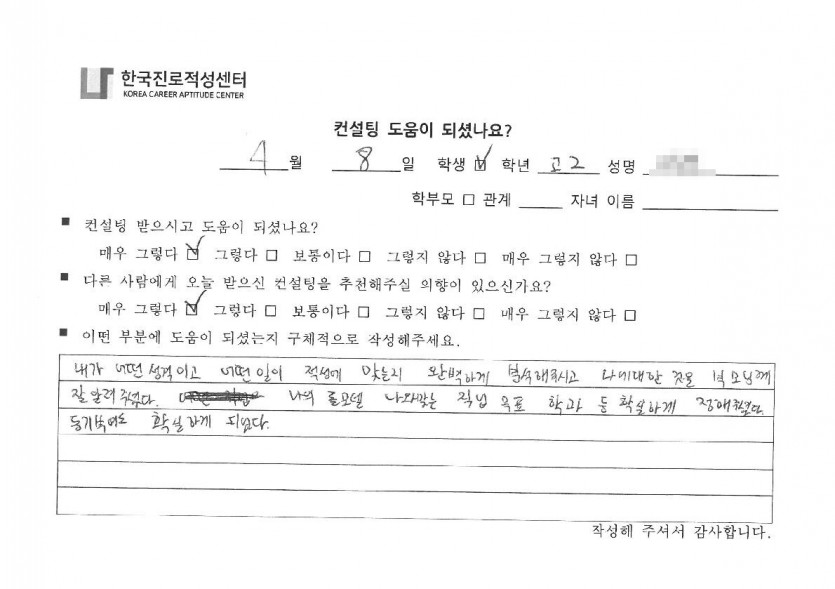 한국진로적성센터
KOREA CAREER APTITUDE CENTER
컨설팅 도움이 되셨나요?
4 월 8 일 학생 ☑ 학년 고2 성명
학부모 □ 관계 ______ 자녀 이름 ______
■ 컨설팅 받으시고 도움이 되셨나요?
매우 그렇다 ☑ 그렇다 □ 보통이다 □ 그렇지 않다 □ 매우 그렇지 않다 □
■ 다른 사람에게 오늘 받으신 컨설팅을 추천해주실 의향이 있으신가요?
매우 그렇다 ☑ 그렇다 □ 보통이다 □ 그렇지 않다 □ 매우 그렇지 않다 □
■ 어떤 부분에 도움이 되셨는지 구체적으로 작성해주세요.
내가 어떤 성격이고 어떤 일이 적성에 맞는지 완벽하게 분석해주시고 나에대한 것을 부모님께
잘 알려 주셨다. 나의 롤모델 나와맞는 직업 목표 학과 등 확실하게 정해졌다.
동기부여도 확실하게 되었다.
작성해 주셔서 감사합니다.